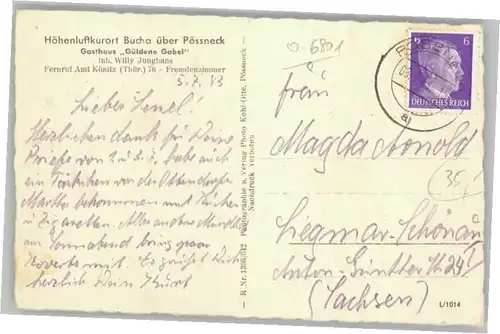 Höhenluftkurort Bucha über Pössneck
Gasthaus „Güldene Gabel"
Inh. Willy Junghans
Fernruf Amt Könitz (Thür.) 76 - Fremdenzimmer
5.7.43
Liebes Lenel!
Herzlichen Dank für Deine
Briefe von 2. u. 3.7. habe auch
ein Päckchen von der Ottendorfer
Martha bekommen mit Kuchen
u. Zigaretten. Alles andere
am Sonnabend bring paar
Kuverts mit. Es grüßt Dich
herzlich Dein Kurt
R Nr. 1393/642 Photographie u. Verlag Photo Kohl-Otte, Pössneck -
Nachdruck Verboten
6801
6
DEUTSCHES REICH
a
Frau
Magda Arnold
35,-
Siegmar-Schönau
Anton-Günther Str. 24
(Sachsen)
L/1014